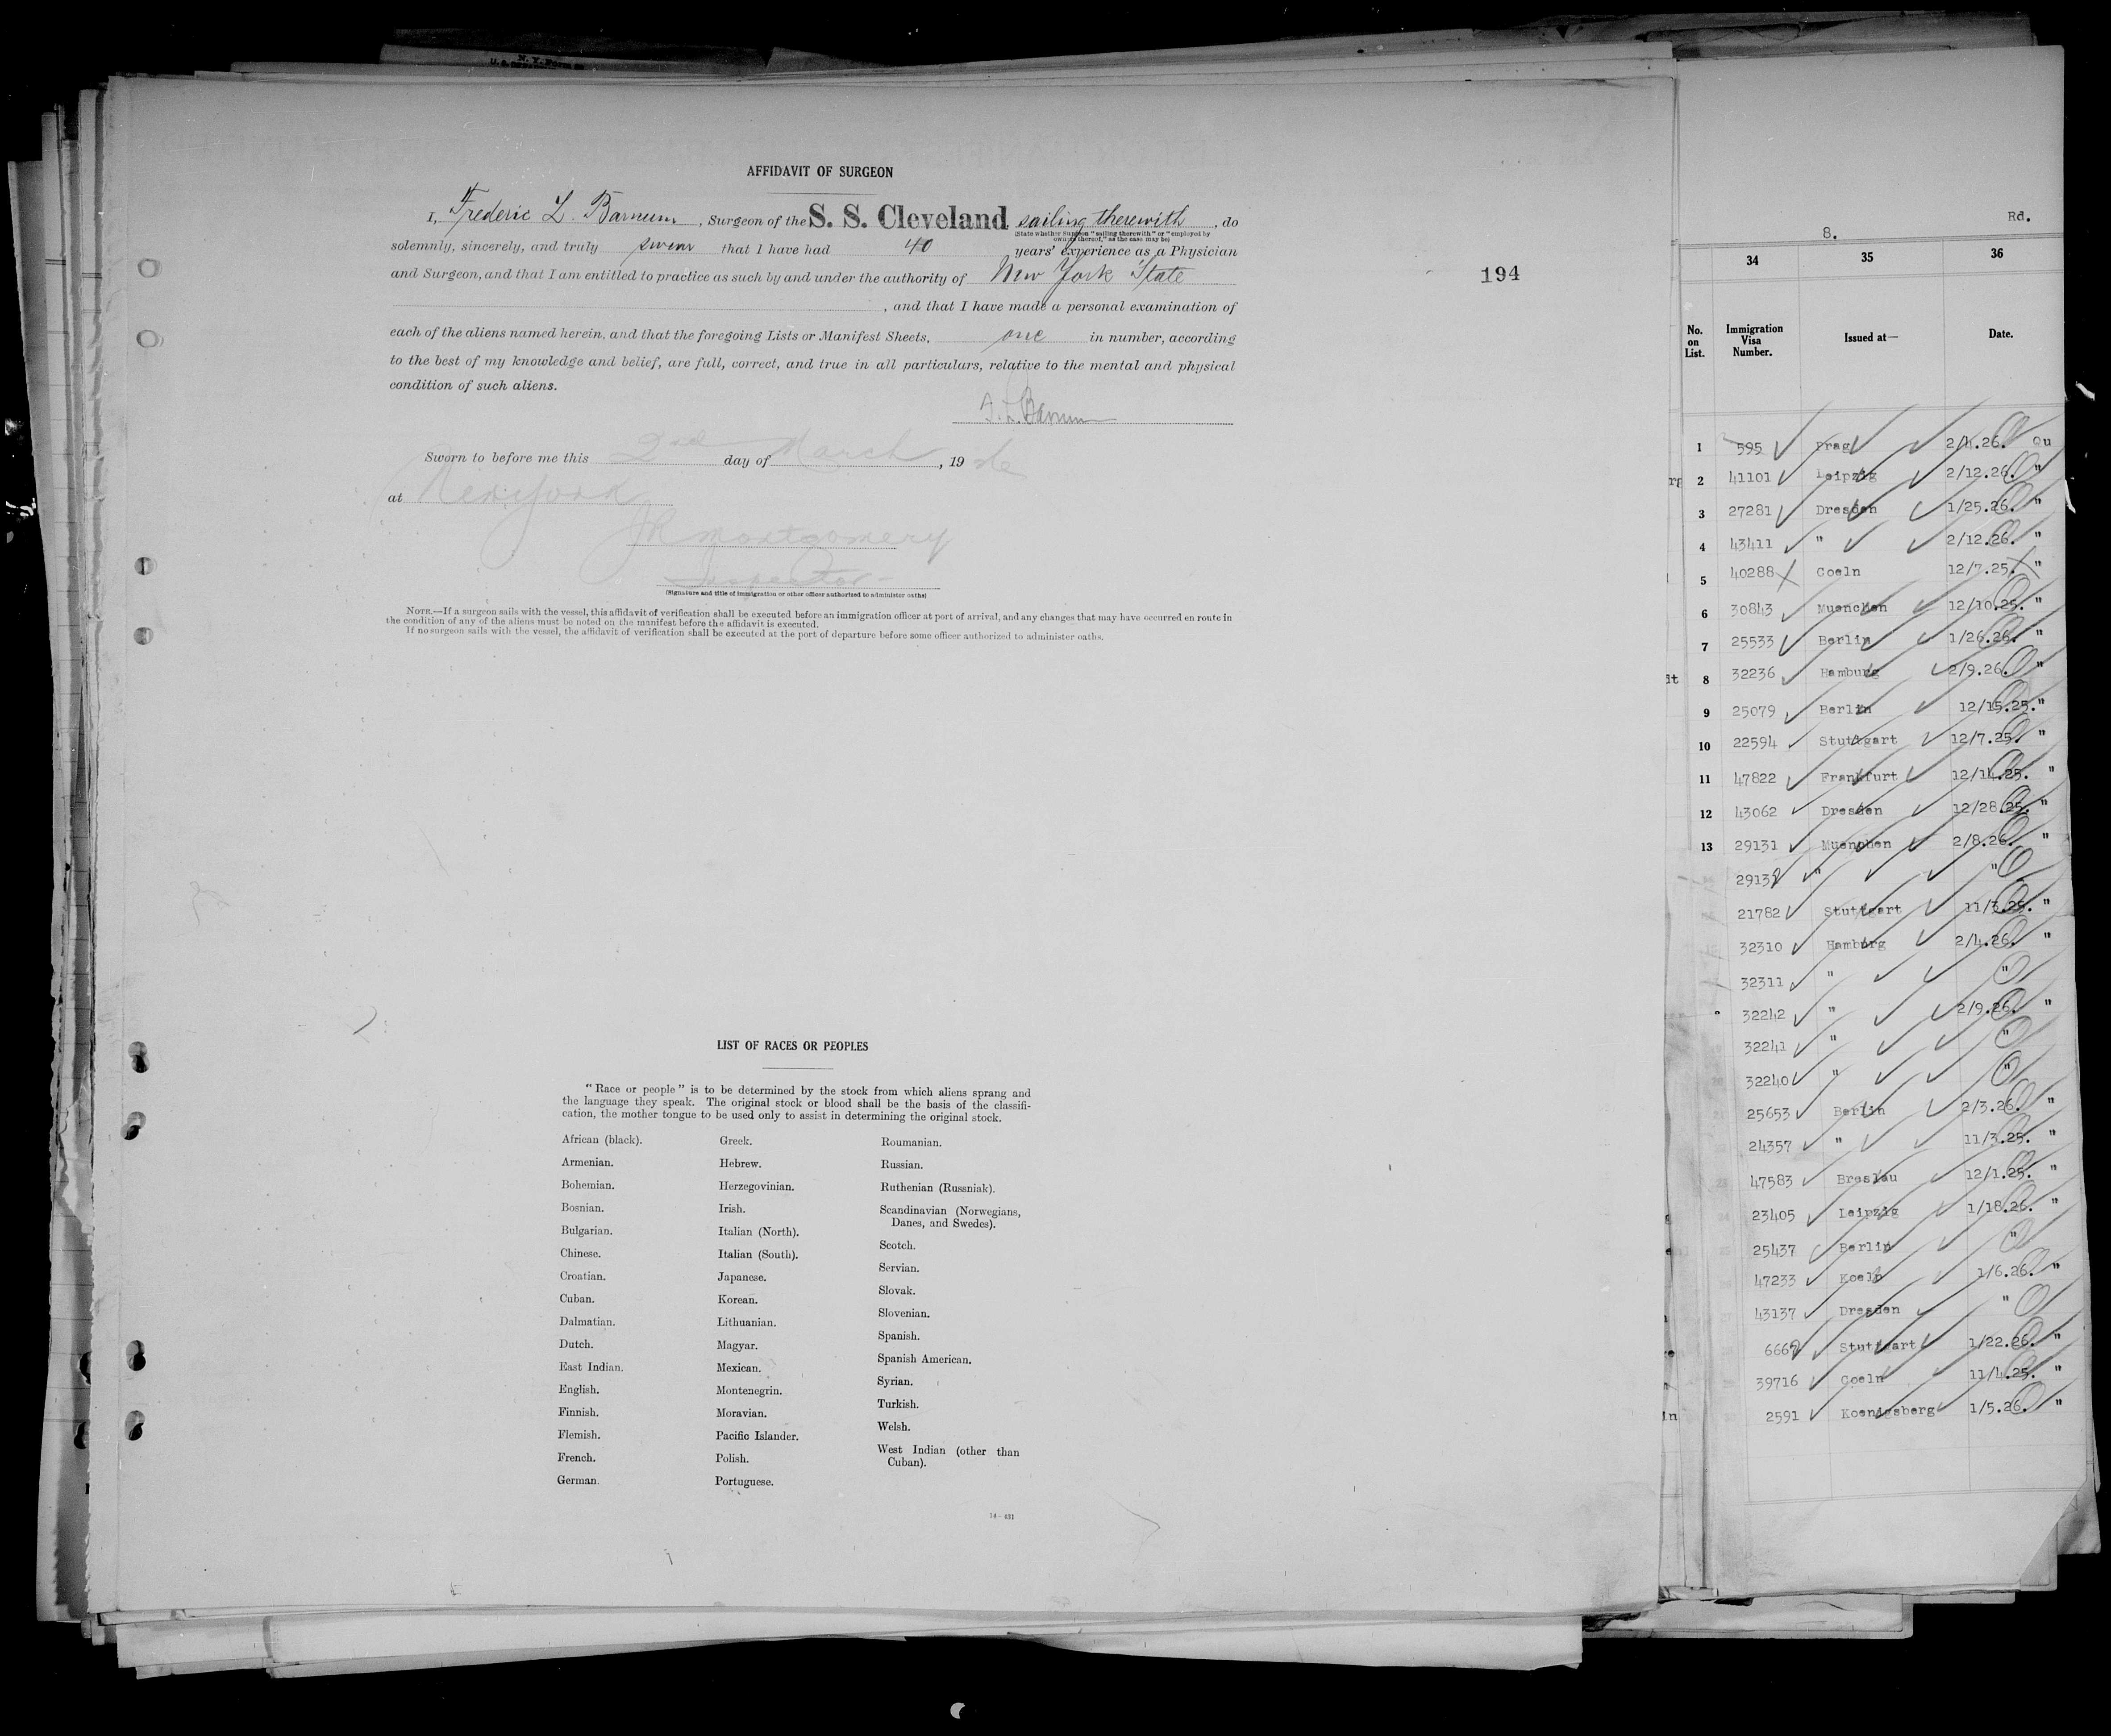 AFFIDAVIT OF SURGEON
I, Frederic L. Barnum, Surgeon of the S. S. Cleveland, sailing therewith, do
(State whether Surgeon "sailing therewith" or "employed by
owners thereof," as the case may be)
solemnly, sincerely, and truly swear that I have had 40 years' experience as a Physician
and Surgeon, and that I am entitled to practice as such by and under the authority of New York State
, and that I have made a personal examination of
each of the aliens named herein, and that the foregoing Lists or Manifest Sheets, one in number, according
to the best of my knowledge and belief, are full, correct, and true in all particulars, relative to the mental and physical
condition of such aliens.
F. L. Barnum
Sworn to before me this 2nd day of March, 19
at New York
JR Montgomery
Inspector
(Signature and title of immigration or other officer authorized to administer oaths)
NOTE.—If a surgeon sails with the vessel, this affidavit of verification shall be executed before an immigration officer at port of arrival, and any changes that may have occurred en route in
the condition of any of the aliens must be noted on the manifest before the affidavit is executed.
If no surgeon sails with the vessel, the affidavit of verification shall be executed at the port of departure before some officer authorized to administer oaths.
194
LIST OF RACES OR PEOPLES
"Race or people" is to be determined by the stock from which aliens sprang and
the language they speak. The original stock or blood shall be the basis of the classifi-
cation, the mother tongue to be used only to assist in determining the original stock.
African (black).
Armenian.
Bohemian.
Bosnian.
Bulgarian.
Chinese.
Croatian.
Cuban.
Dalmatian.
Dutch.
East Indian.
English.
Finnish.
Flemish.
French.
German.
Greek.
Hebrew.
Herzegovinian.
Irish.
Italian (North).
Italian (South).
Japanese.
Korean.
Lithuanian.
Magyar.
Mexican.
Montenegrin.
Moravian.
Pacific Islander.
Polish.
Portuguese.
Roumanian.
Russian.
Ruthenian (Russniak).
Scandinavian (Norwegians,
Danes, and Swedes).
Scotch.
Servian.
Slovak.
Slovenian.
Spanish.
Spanish American.
Syrian.
Turkish.
Welsh.
West Indian (other than
Cuban).
14—431
Rd.
8.
34 35 36
No. on List. Immigration Visa Number. Issued at— Date.
1 595 Prag 2/4.26. Qu
2 41101 Leipzig 2/12.26. "
3 27281 Dresden 1/25.26. "
4 43411 " 2/12.26. "
5 40288 Coeln 12/7.25. "
6 30843 Muenchen 12/10.25. "
7 25533 Berlin 1/26.26. "
8 32236 Hamburg 2/9.26. "
9 25079 Berlin 12/15.25. "
10 22594 Stuttgart 12/7.25. "
11 47822 Frankfurt 12/14.25. "
12 43062 Dresden 12/28.25. "
13 29131 Muenchen 2/8.26. "
29132 " "
21782 Stuttgart 11/3.25. "
32310 Hamburg 2/4.26. "
32311 " "
32242 " 2/9.26. "
32241 " "
32240 " "
25653 Berlin 2/3.26. "
24357 " 11/3.25. "
47583 Breslau 12/1.25. "
23405 Leipzig 1/18.26. "
25437 Berlin "
47233 Koeln 1/6.26. "
43137 Dresden "
Stuttgart 1/22.26. "
39716 Coeln 11/4.25. "
2591 Koenigsberg 1/5.26. "